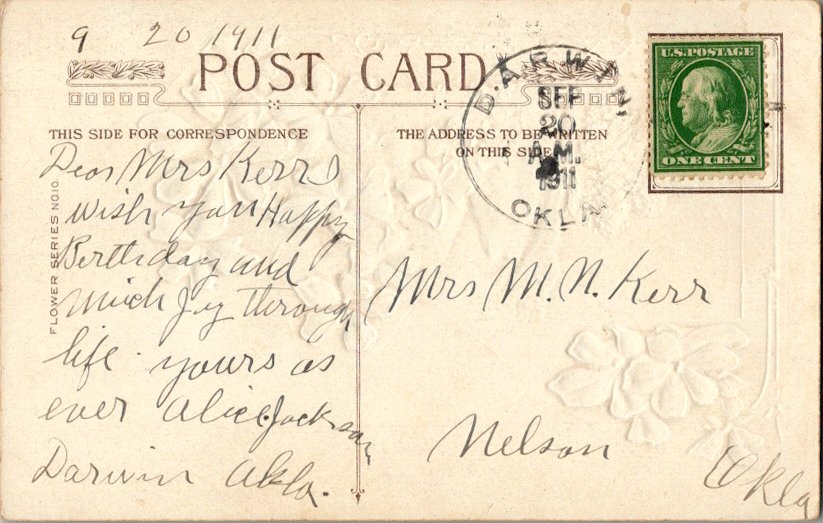 9 20 1911
POST CARD
THIS SIDE FOR CORRESPONDENCE
Dear Mrs Kerr I
wish you Happy
Berthday and
much Joy through
life. yours as
ever Alice Jackson
Darwin Okla.
FLOWER SERIES NO. 10
THE ADDRESS TO BE WRITTEN
ON THIS SIDE
DARWIN,
SEP
20
A.M.
1911
OKLA.
U.S. POSTAGE
ONE CENT
Mrs M. N. Kerr
Nelson
Okla